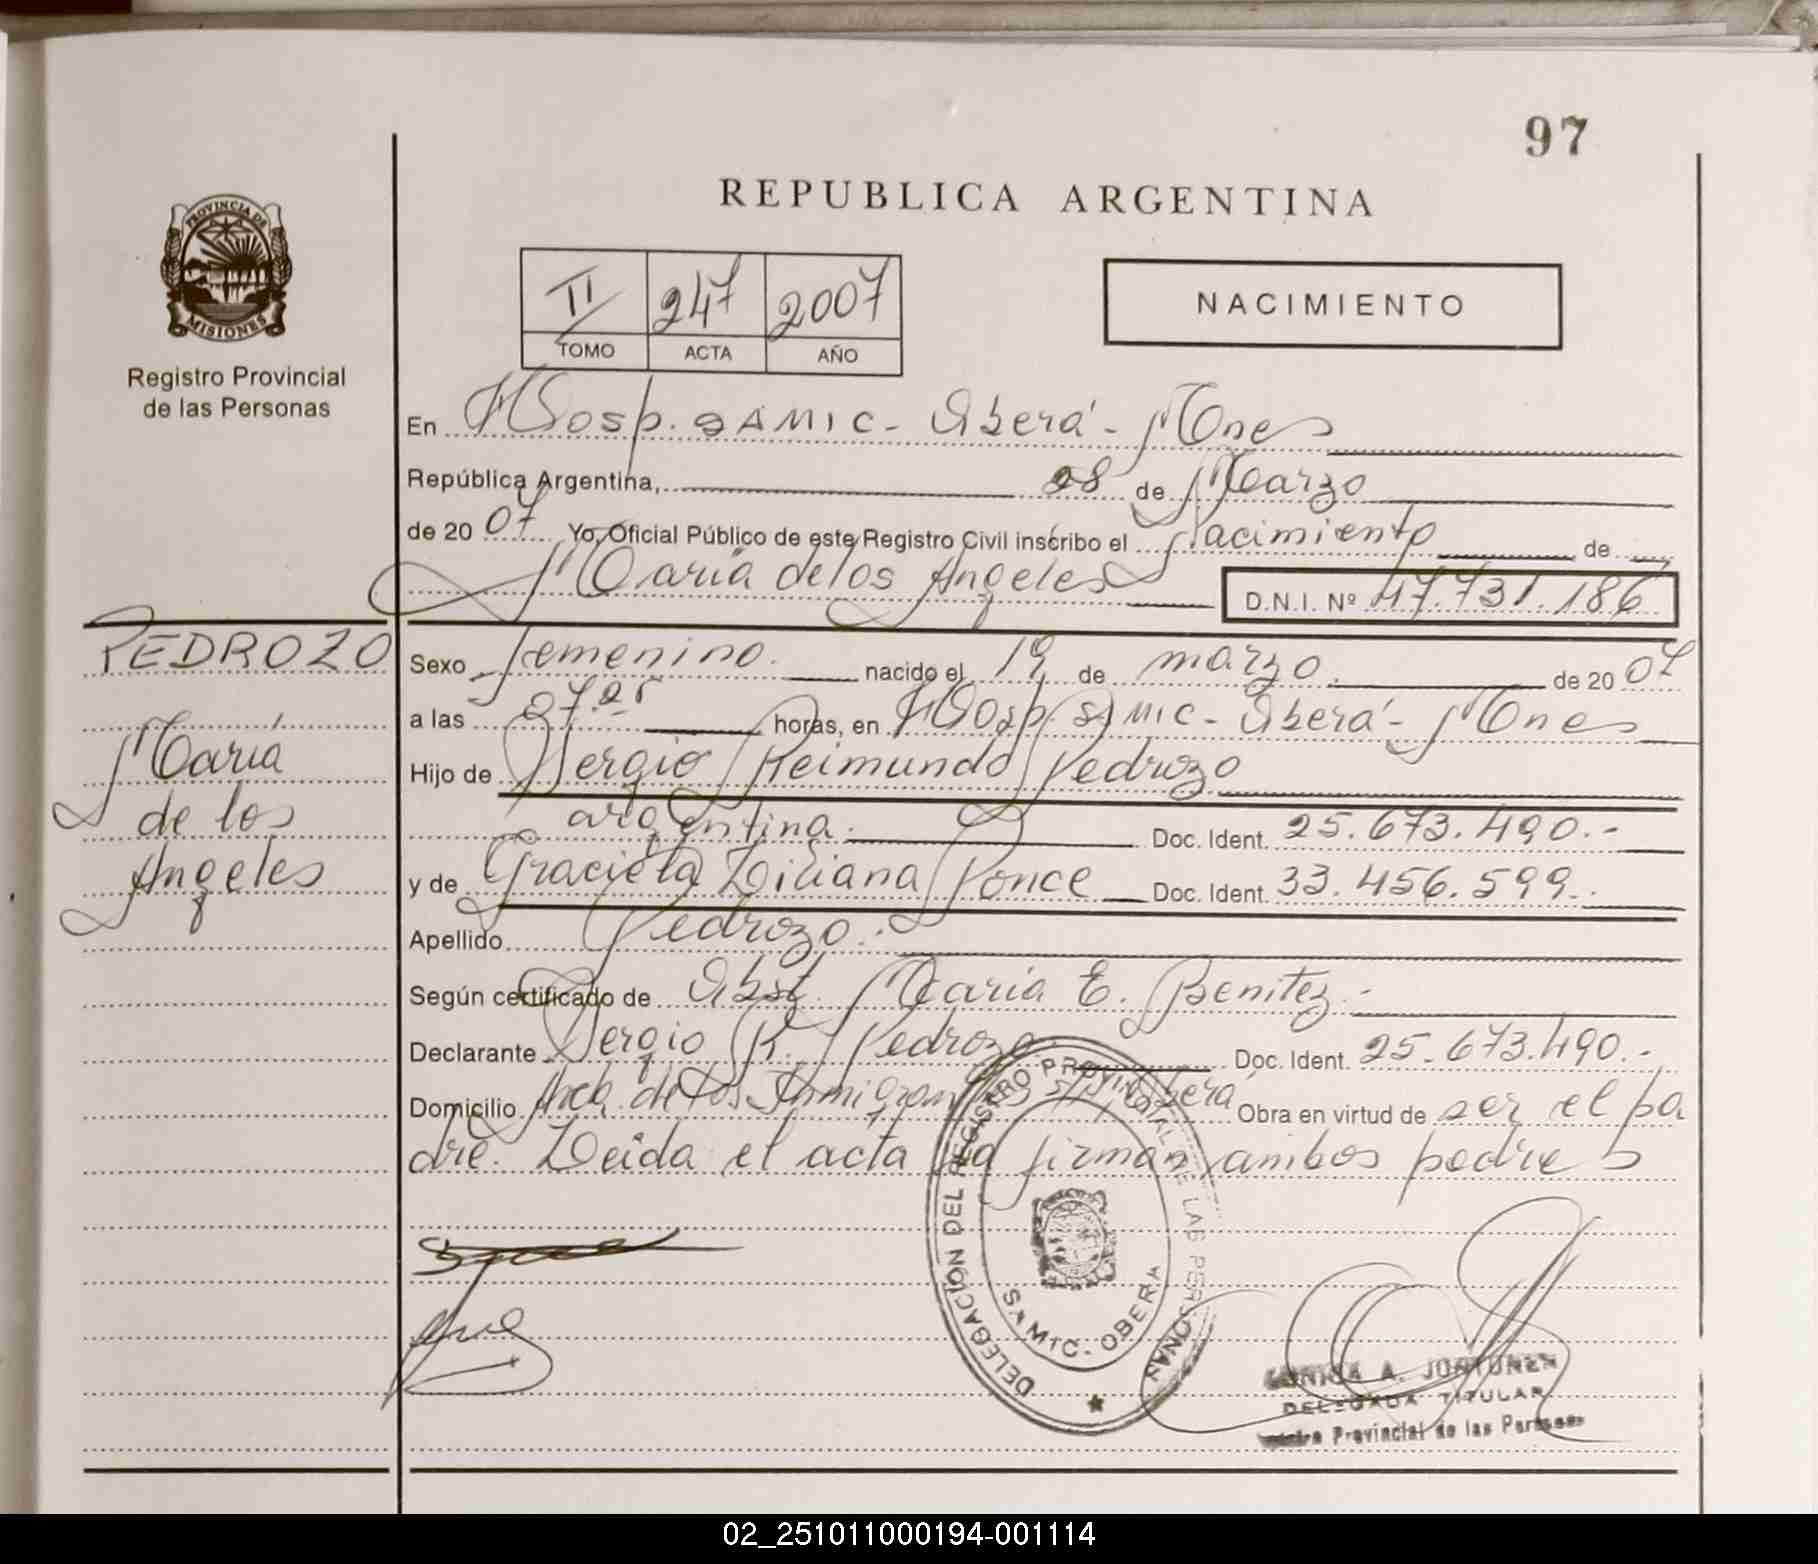 97
REPUBLICA ARGENTINA
PROVINCIA DE
MISIONES
Registro Provincial
de las Personas
II 247 2007
TOMO ACTA AÑO
NACIMIENTO
En Hosp. SAMIC - Oberá - Mnes
República Argentina, 28 de Marzo
de 20 07 Yo, Oficial Público de este Registro Civil inscribo el Nacimiento de
María de los Angeles D.N.I. Nº 47.731.186
PEDROZO
María
de los
Angeles
Sexo femenino. nacido el 19 de marzo. de 20 07
a las 07.25 horas, en Hosp. SAMIC - Oberá - Mnes
Hijo de Sergio Reimundo Pedrozo
argentina. Doc. Ident. 25.673.490.-
y de Graciela Liliana Ponce Doc. Ident. 33.456.599.
Apellido Pedrozo.
Según certificado de Obst. María E. Benitez.-
Declarante Sergio R. Pedrozo Doc. Ident. 25.673.490.-
Domicilio de los Inmigrantes s/n Oberá Obra en virtud de ser el pa
dre. Leída el acta la firman ambos padres
DELEGACIÓN DEL REGISTRO PROVINCIAL DE LAS PERSONAS
SAMIC. OBERA
MONICA A.
DELEGADA TITULAR
Provincial de las Personas
02_251011000194-001114